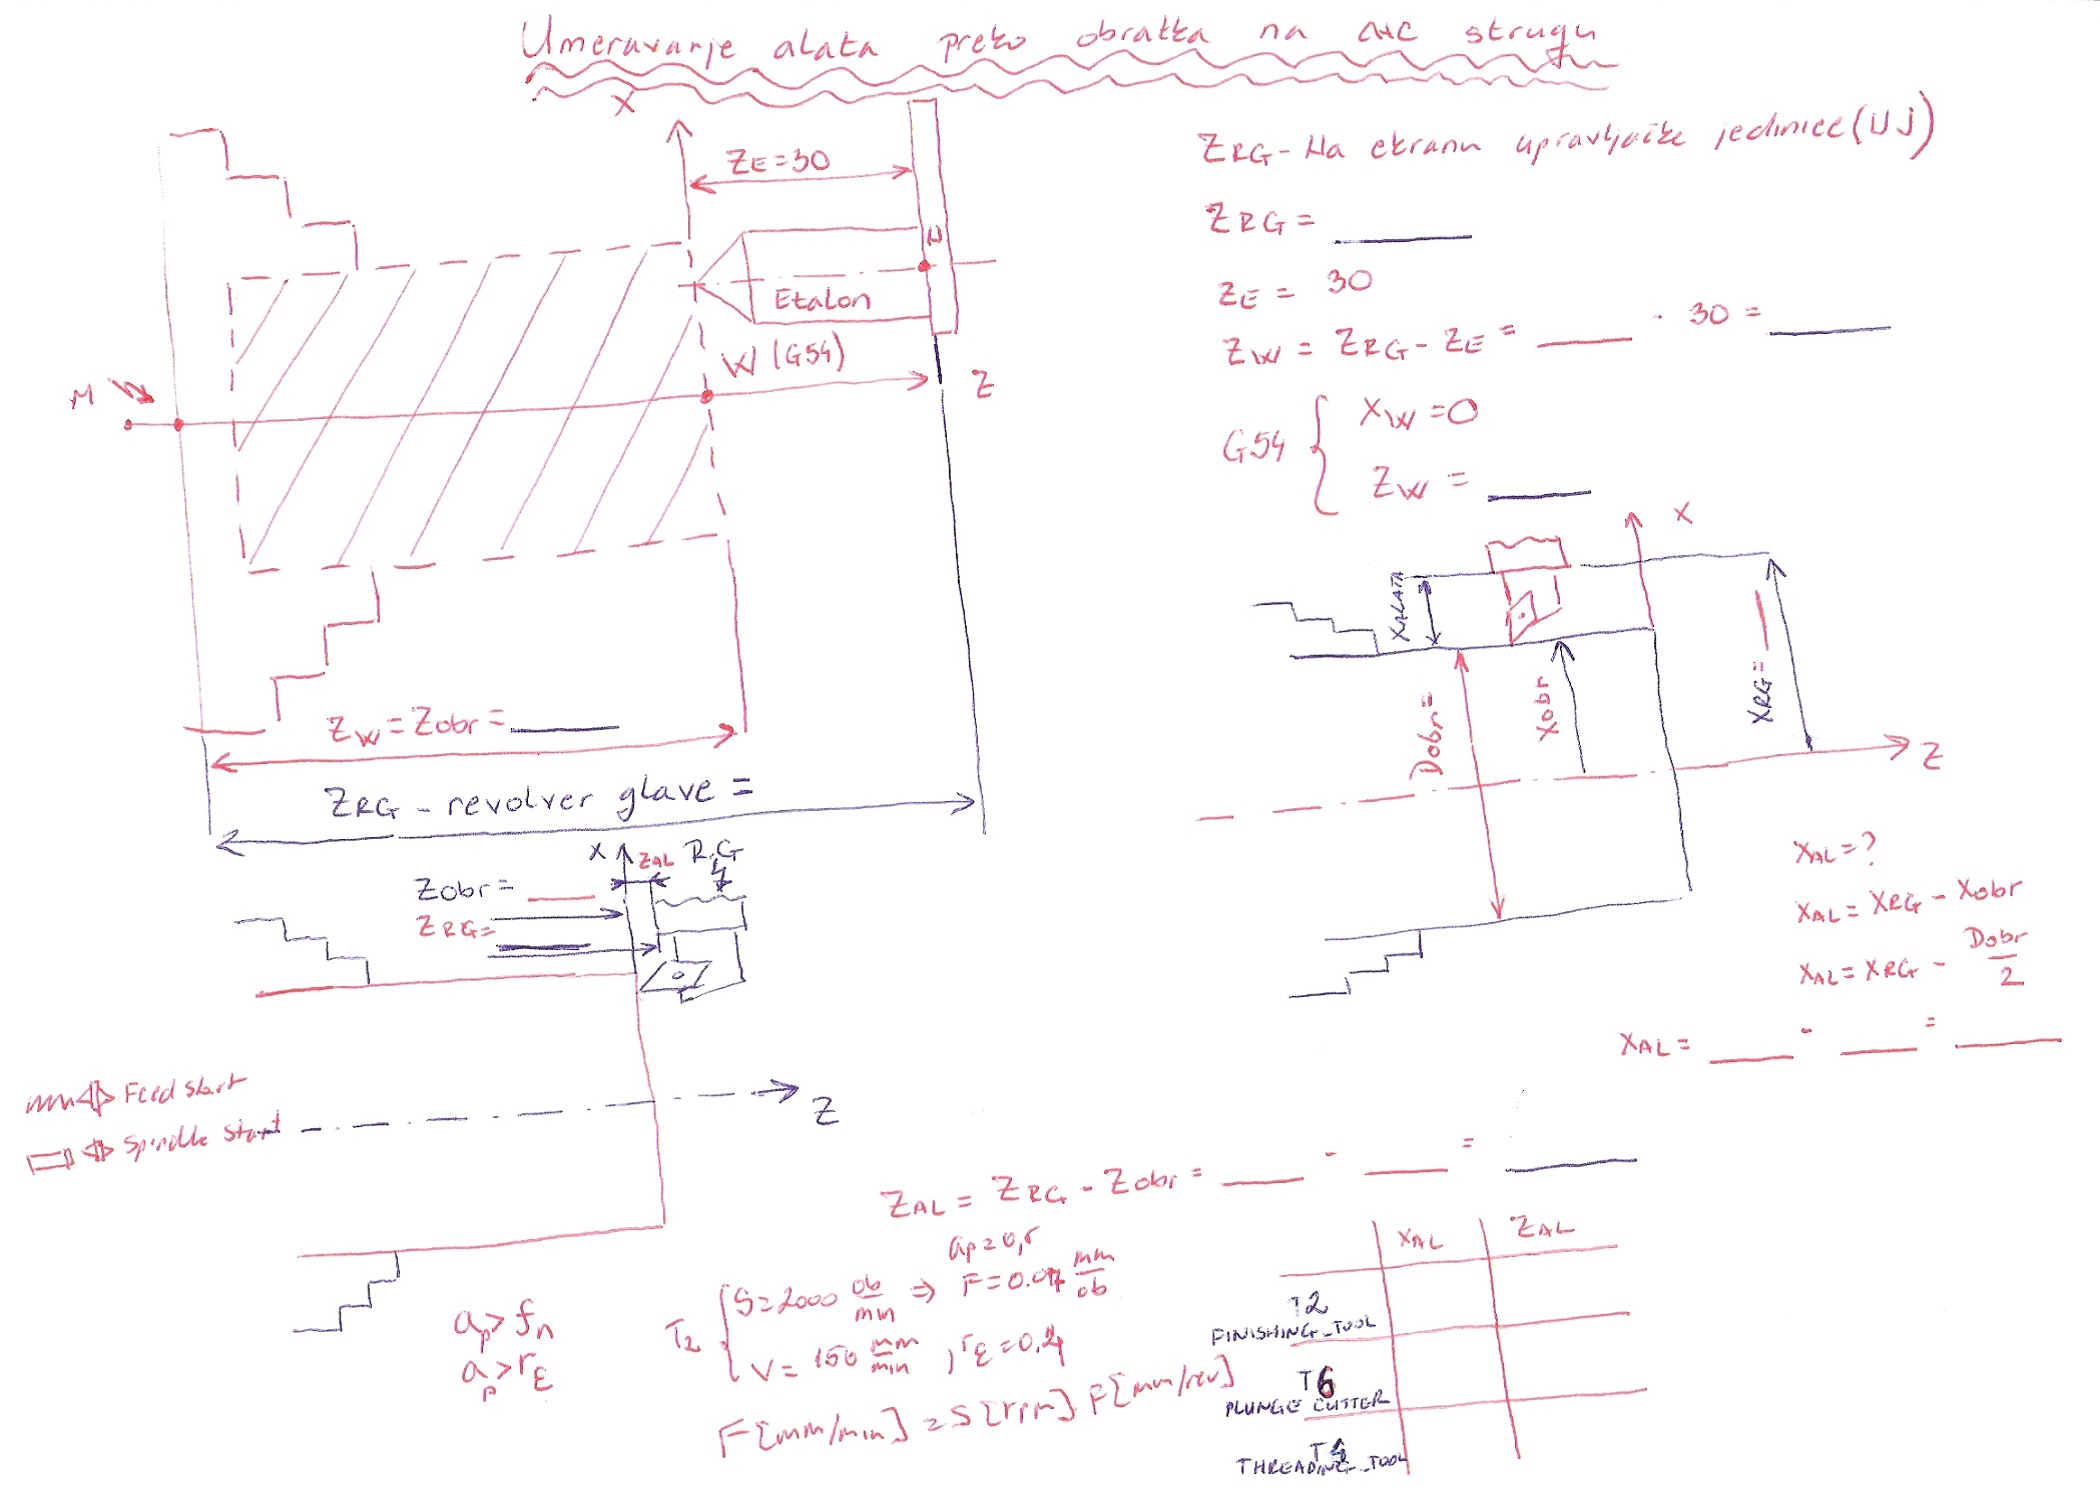 Umeravanje alata preko obratka na CNC strugu
X
ZE=30
N
Etalon
W (G54)
Z
M
ZW = Zobr = ____
ZRG - revolver glave =
ZRG - Na ekranu upravljačke jedinice (UJ)
ZRG = ____
ZE = 30
ZW = ZRG - ZE = ____ - 30 = ____
G54 { XW = 0
ZW = ____
X
XALATA
Dobr=
Xobr
XRG= ____
Z
XAL = ?
XAL = XRG - Xobr
XAL = XRG - Dobr/2
XAL = ____ - ____ = ____
X ZAL R.G
Zobr = ____
ZRG= ____
Z
Feed start
Spindle start
ZAL = ZRG - Zobr = ____ - ____ = ____
ap > fn
ap > rE
ap=0,5
T2 { S=2000 ob/min => F=0.07 mm/ob
V= 150 mm/min , rE=0.4
F[mm/min] = S[rpm] . F[mm/rev]
XAL ZAL
T2
FINISHING_TOOL
T6
PLUNGE CUTTER
T4
THREADING_TOOL